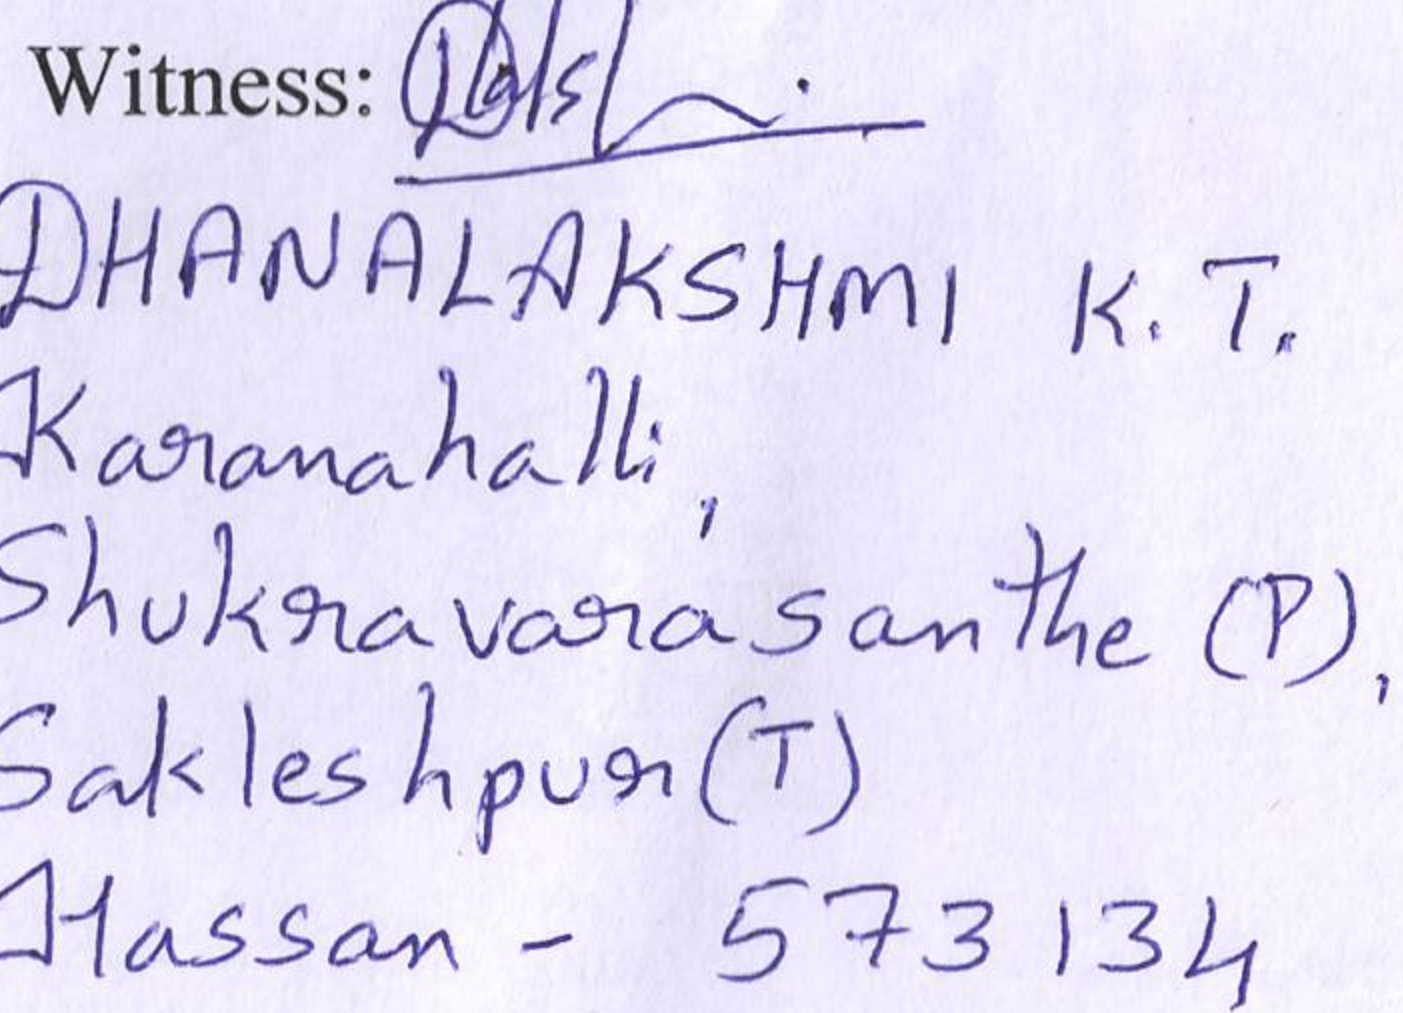 Witness:
DHANALAKSHMI K.T.
Karanahalli,
Shukravarasanthe (P),
Sakleshpur (T)
Hassan - 573134